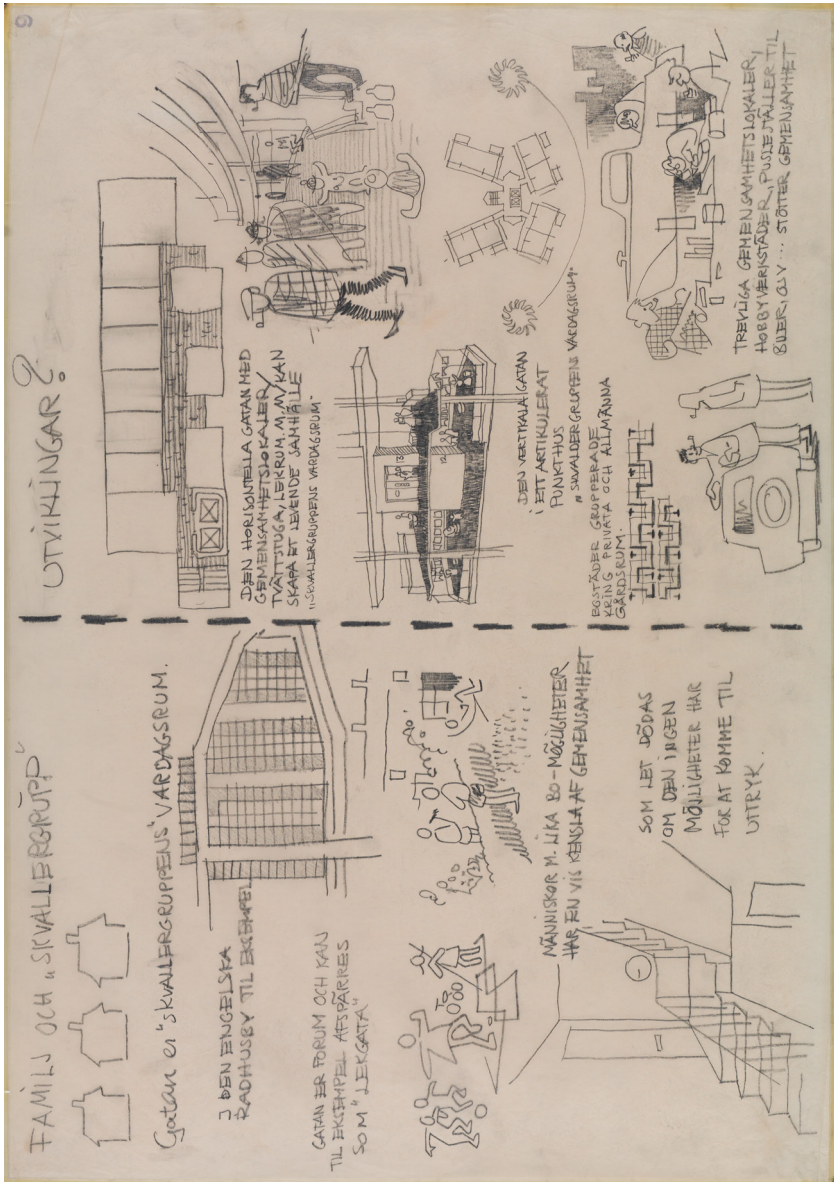 6
FAMILJ OCH „SKVALLERGRUPP"
Gatan er "SKVALLERGRUPPENS" VARDAGSRUM.
I DEN ENGELSKA
RADHUSBY TIL EKSEMPEL
GATAN ER FORUM OCH KAN
TIL EKSEMPEL AFSPÄRRES
SOM "LEKGATA"
MÄNNISKOR M. LIKA BO-MÖGLIGHETER
HAR EN VIS KENSLA AF GEMENSAMHET
SOM LET DÖDAS
OM DEN INGEN
MÖJLIGHETER HAR
FOR AT KOMME TIL
UITRYK.
UTVIKLINGAR?
DEN HORISONTELLA GATAN MED
GEMENSAMHETSLOKALER/
TVÄTTSTUGA, LEKRUM, M.M/KAN
SKAPA ET LEVENDE SAMHÄLLE
„SKVALLERGRUPPENS VARDAGSRUM"
DEN VERTIKALA GATAN
i ETT ARTIKULERAT
PUNKTHUS
„SKVALDERGRUPPENS VARDAGSRUM"
EGSTÄDER GRUPPERADE
KRING PRIVATA OCH ALLMÄNNA
GÅRDSRUM.
TREVLIGA GEMENSAMHETSLOKALER,
HOBBYVERKSTÄDER, PUSLESTÄLLER TIL
BILER, O.L.V... STÖTTER GEMENSAMHET